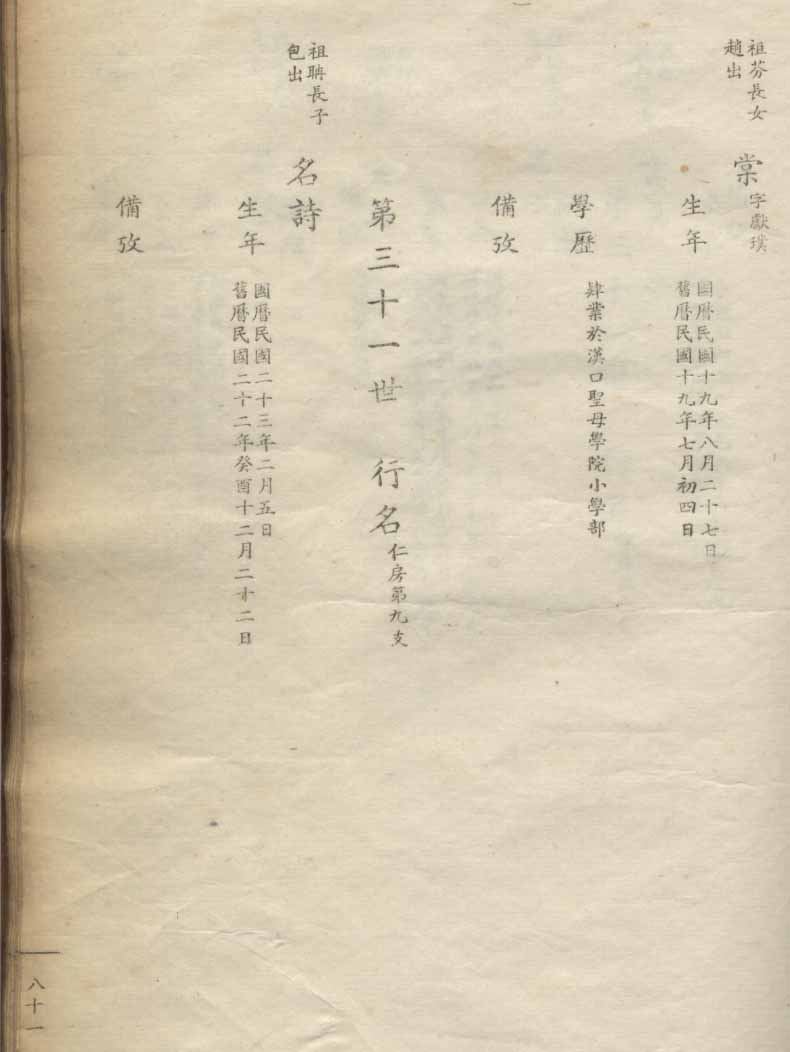 祖芬長女
趙出
棠 字獻璞
生年
國曆民國十九年八月二十七日
舊曆民國十九年七月初四日
學歷
肄業於漢口聖母學院小學部
備攷
第三十一世 行名 仁房第九支
祖聃長子
包出
名詩
生年
國曆民國二十三年二月五日
舊曆民國二十二年癸酉十二月二十二日
備攷
八十一